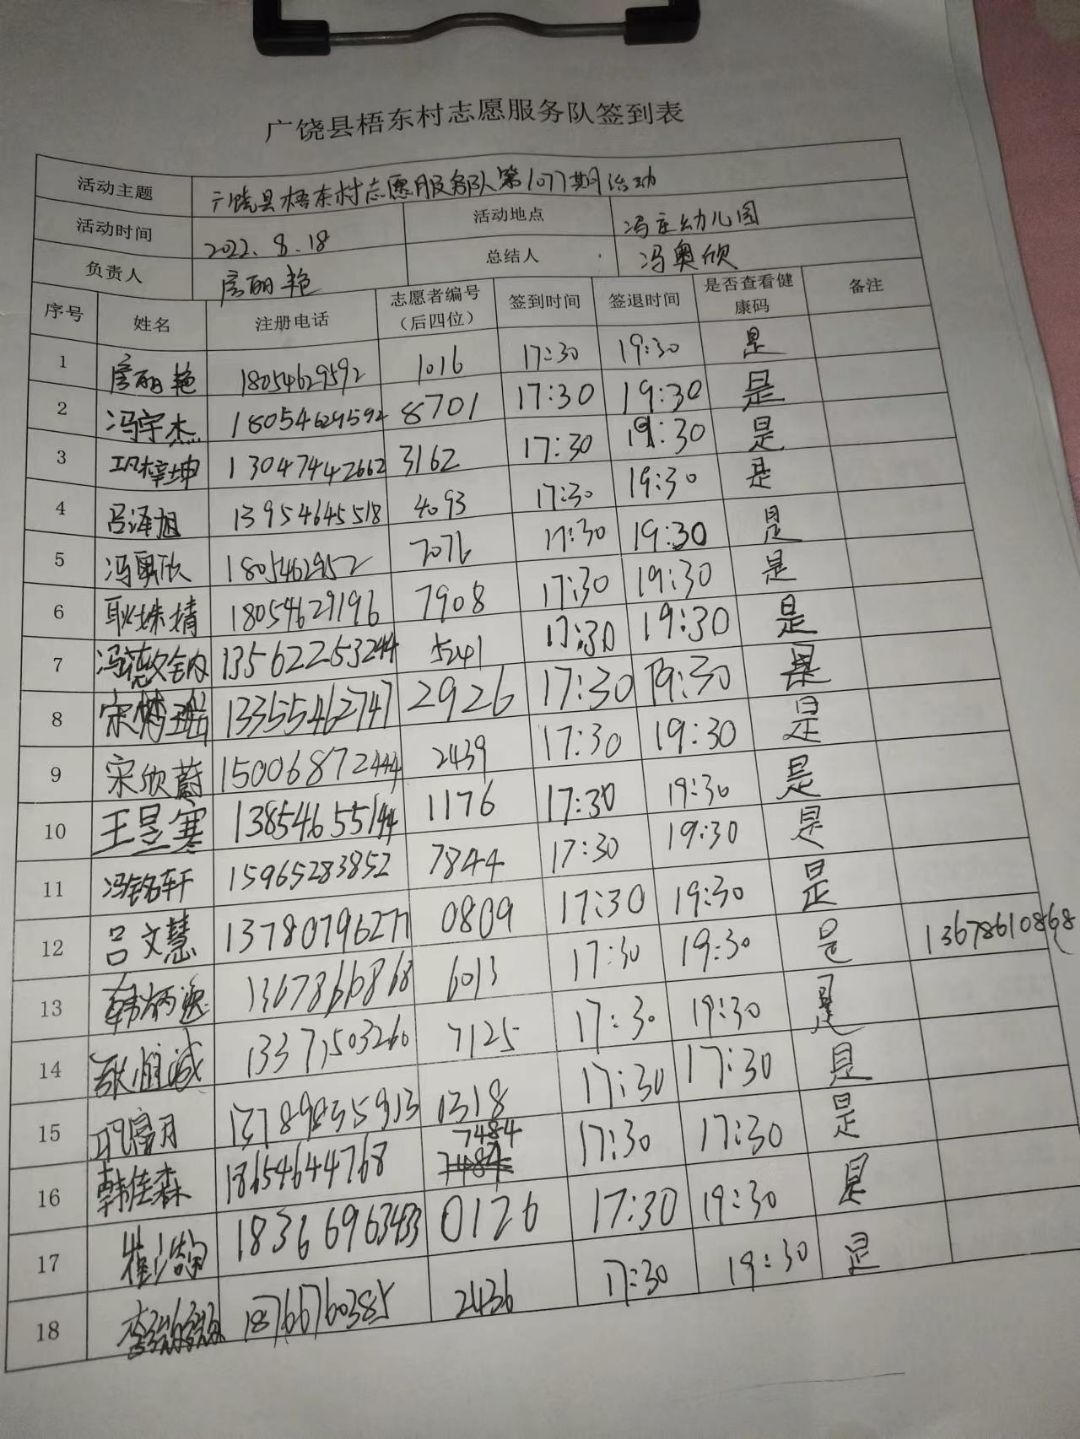 广饶县梧东村志愿服务队签到表
活动主题 广饶县梧东村志愿服务队第1077期活动
活动时间 2022.8.18 活动地点 冯庄幼儿园
负责人 房丽艳 总结人 冯奥欣
序号 姓名 注册电话 志愿者编号（后四位） 签到时间 签退时间 是否查看健康码 备注
1 房丽艳 18054629592 1016 17:30 19:30 是
2 冯宇杰 18054629592 8701 17:30 19:30 是
3 巩梓坤 13047442662 3162 17:30 19:30 是
4 吕泽旭 13954645518 4093 17:30 19:30 是
5 冯奥欣 1805462952 7076 17:30 19:30 是
6 耿姝婧 18054629196 7908 17:30 19:30 是
7 13562253244 5241 17:30 19:30 是
8 宋梦瑶 13355462747 2926 17:30 19:30 是
9 宋欣蔚 15006872444 2439 17:30 19:30 是
10 王昱寒 13854655144 1176 17:30 19:30 是
11 冯铭轩 15965283852 7844 17:30 19:30 是
12 吕文慧 13780796277 0809 17:30 19:30 是
13 韩炳逸 6013 17:30 19:30 是 13678610868
14 13371503260 7125 17:30 19:30 是
15 1318 17:30 17:30 是
16 韩佳森 18654644768 7484 17:30 17:30 是
17 0126 17:30 19:30 是
18 18766760385 2436 17:30 19:30 是